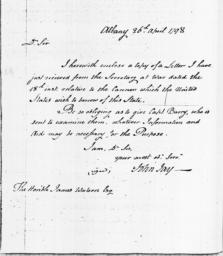 Albany 26th April 1798
Dr Sir
I herewith enclose a copy of a Letter I have
just received from the Secretary at War dated the
18th inst. relative to the Cannon which the United
States wish to borrow of this State.
Be so obliging as to give Capt Barry, who is
sent to examine them, whatever Information and
Aid may be necessary for the Purpose.
I am Dr Sir
your most ob. Servt
(signed) John Jay
The Honble James Watson Esq